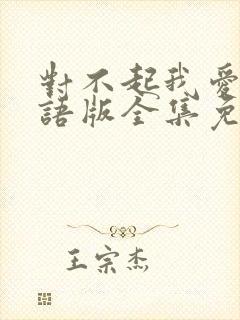 對不起我愛
語版全集免
王宗杰